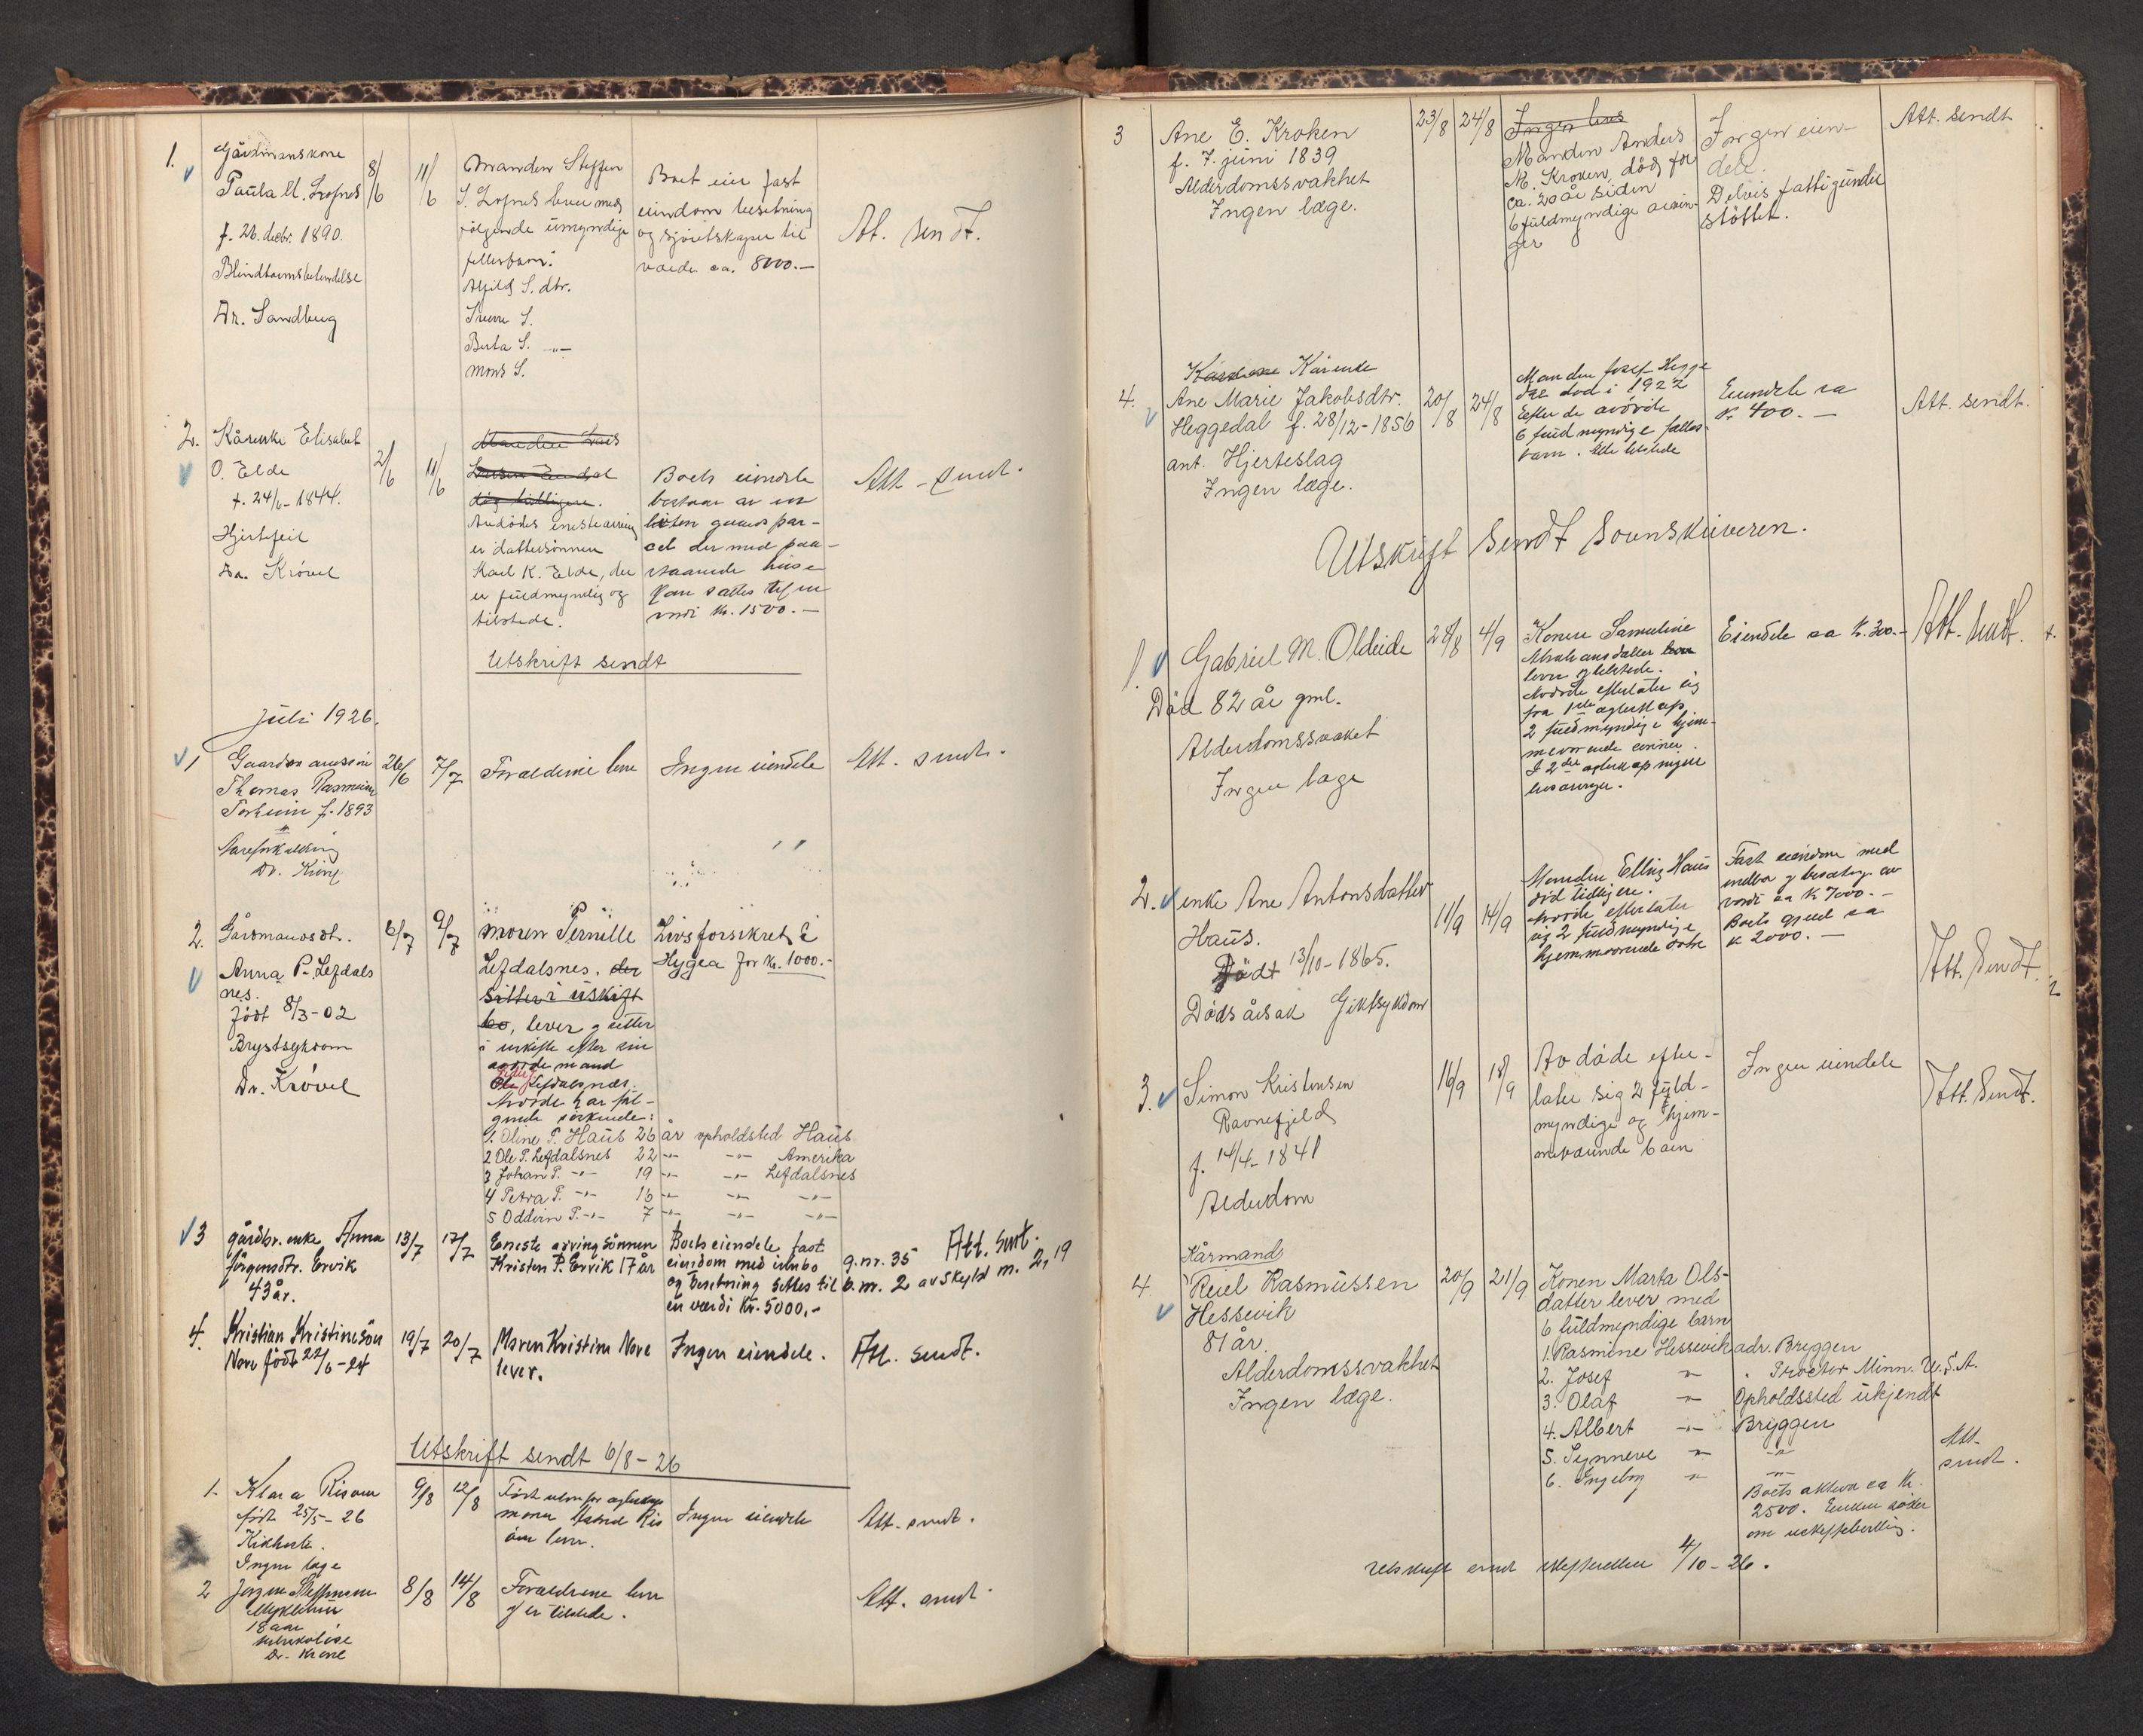 1.
Gårdmanskone
Paula M.
f. 26. decbr. 1890.
Dr. Sandberg
8/6
11/6
Manden Steffen
S. lever med
følgende umyndige
fellesbarn:
Alfild S. dtr.
Sverre S.
Berta S. -"-
Mons S.
Boet eier fast
eiendom besetning
og sjøretskaper til
værdi ca. 8000.-
At. sendt.
2.
Kårenke Elisabet
O. Elde
f. 24/6-1844.
Hjertefeil
Dr. Krövel
2/6
11/6
Manden
død tidligere.
Avdødes eneste arving
er dattersønnen
Karl K. Elde, der
er fuldmyndig og
tilstede.
Boets eiendele
bestaar av en
liten gaards par-
cel der med paa-
staaende huse
kan sættes til en
verdi kr. 1500.-
Att. sendt.
Utskrift sendt
Juli 1926.
1
Thomas Rasmusen
f. 1893
Dr.
26/6
7/7
Foraldrene leve
Ingen eiendele
Att. sendt.
2.
Gårdmandsdt.
Anna P. Lefdals
nes.
Født 8/3-02
Brystsykdom
Dr. Krövel
6/7
9/7
Moren Pernille
Lefdalsnes, der
sitter i uskift
bo, lever og sitter
i uskifte efter sin
avdøde mand
Ole Lefdalsnes.
Avdøde har föl-
gende söskende:
1. Oline P. Haus 26 år opholdsted Haus
2 Ole P. Lefdalsnes 22 -"- -"- Amerika
3 Johan P. -"- 19 -"- -"- Lefdalsnes
4 Petra P. -"- 16 -"- -"- -"-
5 Oddvin P. -"- 7 -"- -"- -"-
Livsforsikret i
Hygea for kr. 1000.-
3
gårdbr. enke Anna
Jörgensdtr. Ervik
43 år.
13/7
17/7
Eneste arving sönnen
Kristen P. Ervik 17 år
Boets eiendele fast
eiendom med innbo
og besetning settes til
en værdi kr. 5000,-
g.nr. 35
b.nr. 2 av skyld m. 2,19
Att. sent.
4.
Kristian Kristinesön
Nore født 22/6-24
19/7
20/7
Maren Kristine Nore
lever.
Ingen eiendele.
Att. sendt.
Utskrift sendt 6/8-26
1.
Klara Risøen
født 25/5-26
Kikhoste.
Ingen læge
9/8
12/8
Født utenfor ægteskap
moren
lever.
Ingen eiendele
Att. sendt.
2
Jørgen Steffensen
Myklebust
18 aar
Dr.
8/8
14/8
Foraldrene leve
og er tilstede.
Att. sendt
3
Ane E. Kroken
f. 7. juni 1839
Alderdomssvakhet
Ingen læge.
23/8
24/8
Ingen
Manden Anders
M. Kroken, död for
ca. 20 år siden
6 fuldmyndige arvin-
ger
Ingen eien-
dele.
Delvis fattigunder
støttet.
Att. sendt
4.
Kårenke
Ane Marie Jakobsdtr.
Heggedal f. 28/12-1856
ant. Hjerteslag
Ingen læge.
20/8
24/8
Manden Josef Hegge
dal død i 1922
Efter de avdöde
6 fuldmyndige felles-
barn. Alle tilstede
Eiendele ca
kr. 400.-
Att. sendt.
Utskrift sendt Sorenskriveren.
1.
Gabriel M. Oldeide
Död 82 år gml.
Alderdomssvakhet
Ingen læge
28/8
4/9
Konen Samueline
Abrahamsdatter
lever og tilstede.
Avdøde efterlater sig
fra 1ste ægteskap
2 fuldmyndige hjem-
meværende sønner.
I 2det ægteskap ingen
livsarvinger.
Eiendele ca kr. 300.-
Att. sendt.
2.
enke Ane Antonsdatter
Haus.
Födt 13/10-1865.
Dødsårsak Giktsykdom
11/9
14/9
Manden Elling Haus
död tidligere.
Avdøde efterlater
sig 2 fuldmyndige
hjemmeværende døtre
Fast eiendom med
indbo og besætning av
værdi ca kr 7000.-
Boets gjeld ca
kr 2000.-
Att. sendt.
3.
Simon Kristensen
Ravnefjeld
f. 14/4-1841
Alderdom
16/9
18/9
Avdöde efter-
later sig 2 fuld-
myndige og hjem-
meværende barn
Ingen eiendele
Att. sendt.
4.
Kårmand
Reiel Rasmussen
Hessevik
81 år.
Alderdomssvakhet
Ingen læge.
20/9
21/9
Konen Marta Ols-
datter lever med
6 fuldmyndige barn
1. Rasmine Hessevik adr. Bryggen
2. Josef -"- " Proctor Minn. U.S.A.
3. Olaf -"- Opholdssted ukjendt
4. Albert -"- Bryggen
5. Synneve -"- -"-
6. Ingeborg -"- -"-
Boets aktiva ca kr.
2500. Enken söker
om uskiftebevilling.
Att.
sendt.
Utskrift sendt skifteretten 4/10-26.